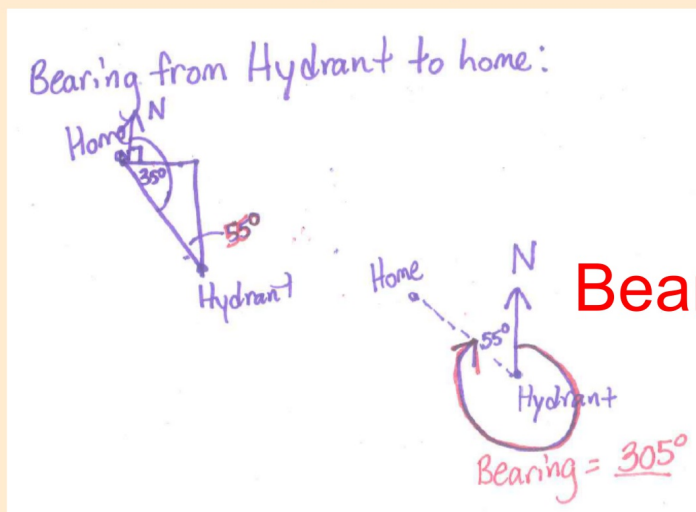 Bearing from Hydrant to home:
N
Home
35°
55°
Hydrant
Home
N
Bear
55°
Hydrant
Bearing = 305°